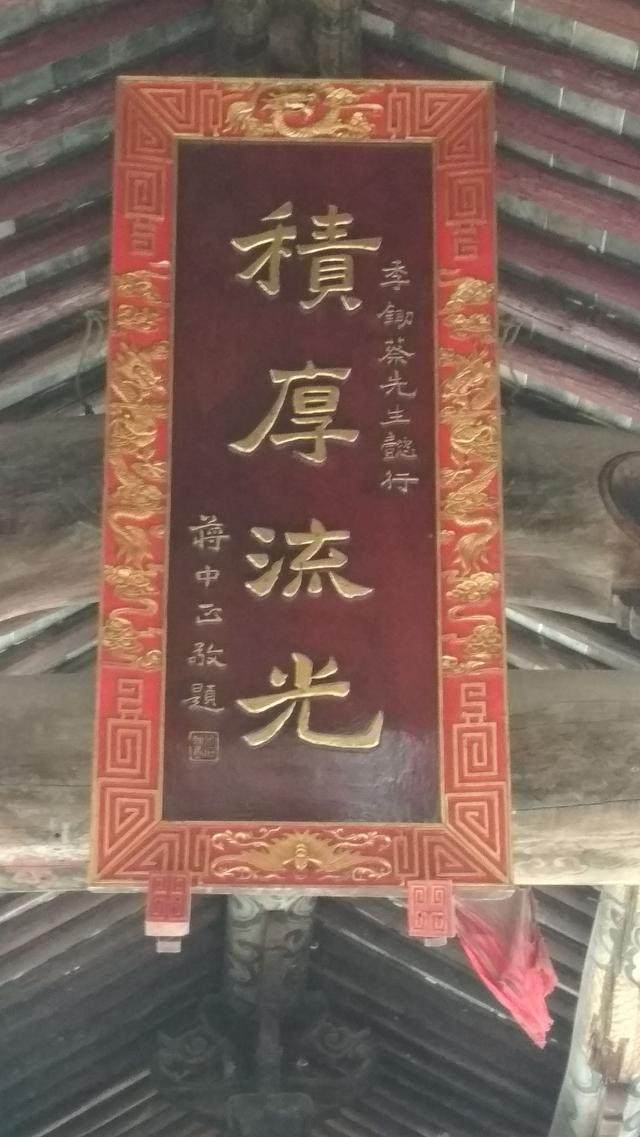 季鋤蔡先生懿行
積厚流光
蔣中正敬題